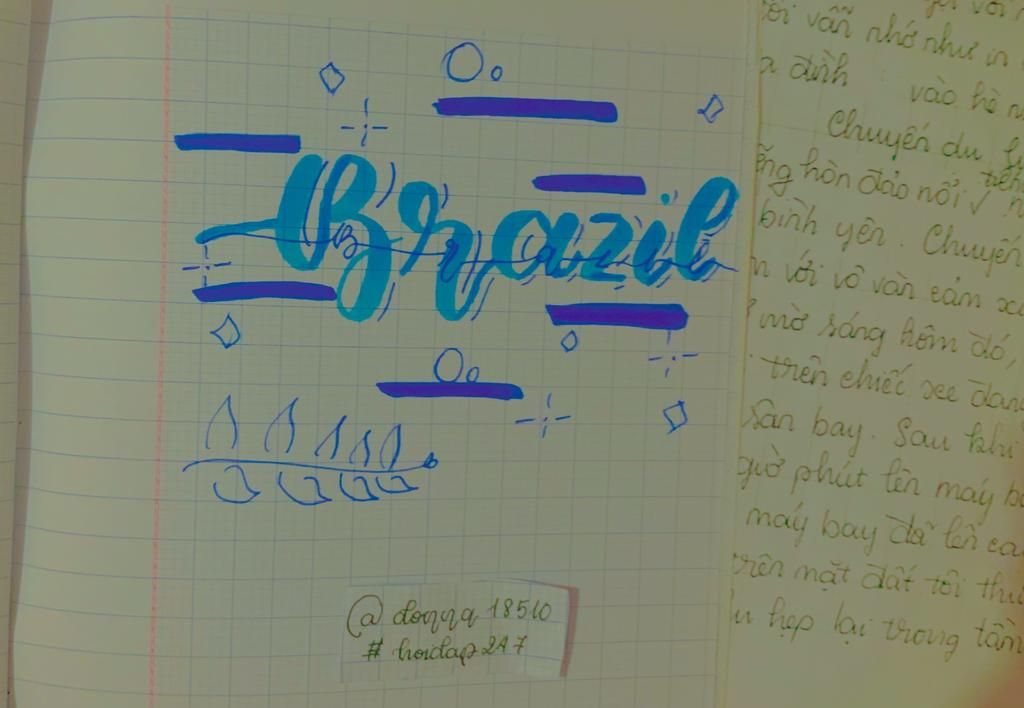 Brazil
@ 18510
# hoidap247
với
tôi vẫn nhớ như in
đình vào hè
Chuyến du
hòn đảo nổi
bình yên. Chuyến
với vô vàn cảm
mờ sáng hôm đó,
trên chiếc xe
sân bay. Sau khi
giờ phút lên máy
máy bay đã lên
trên mặt đất tôi
hẹp lại trong